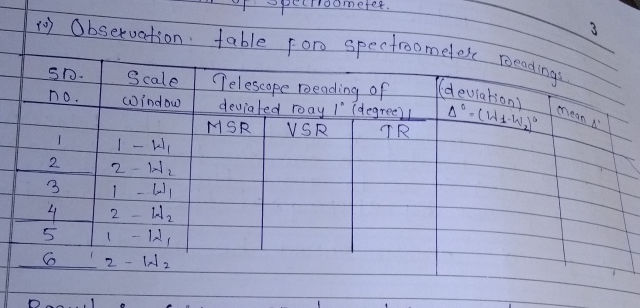 of spectroometer.
3
Observation table foro spectroometer roeadings
Sr. no.
Scale window
Telescope roeading of deviated roay 1° (degree)
(deviation) Δ° = (W1-W2)°
mean Δ°
MSR VSR TR
1 1 - W1
2 2 - W2
3 1 - W1
4 2 - W2
5 1 - W1
6 2 - W2